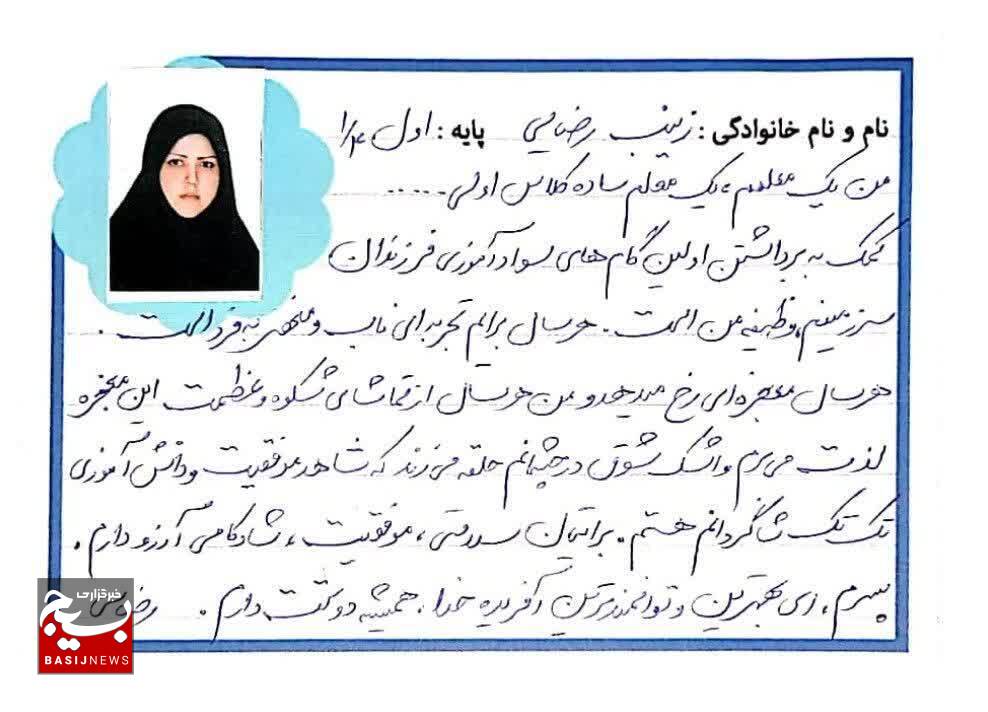 نام و نام خانوادگی : زینب رضایی پایه : اول ۱/۴
من یک معلمم ، یک معلم ساده کلاس اولی .....
کمک به برداشتن اولین گام های سوادآموزی فرزندان
سرزمینم، وظیفه من است . هر سال برایم تجربه ای ناب و منحصر به فرد است .
هر سال معجزه ای رخ میدهد و من هر سال از تماشای شکوه و عظمت این معجزه
لذت می برم و اشک شوق در چشمانم حلقه می زند که شاهد موفقیت و دانش آموزی
تک تک شاگردانم هستم . برایتان سلامتی ، موفقیت ، شادکامی آرزو دارم .
پسرم ، ای بهترین و توانمندترین آفریده خدا ، همیشه دوستت دارم . رضایی
خبرگزاری
بسیج
BASIJNEWS